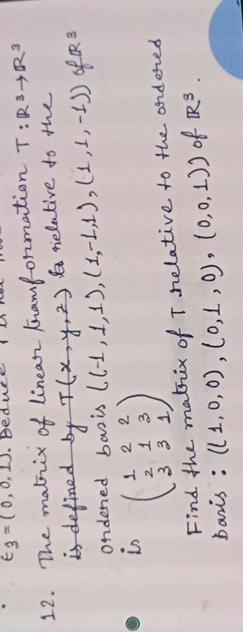 ε3 = (0,0,1). Deduce
12. The matrix of linear transformation T: ℝ3→ℝ3
is defined by T(x, y, z) is relative to the
ordered basis ((-1,1,1), (1,-1,1), (1,1,-1)) of ℝ3
is
( 1 2 2
2 1 3
3 3 1 )
Find the matrix of T relative to the ordered
basis : ((1,0,0), (0,1,0), (0,0,1)) of ℝ3.